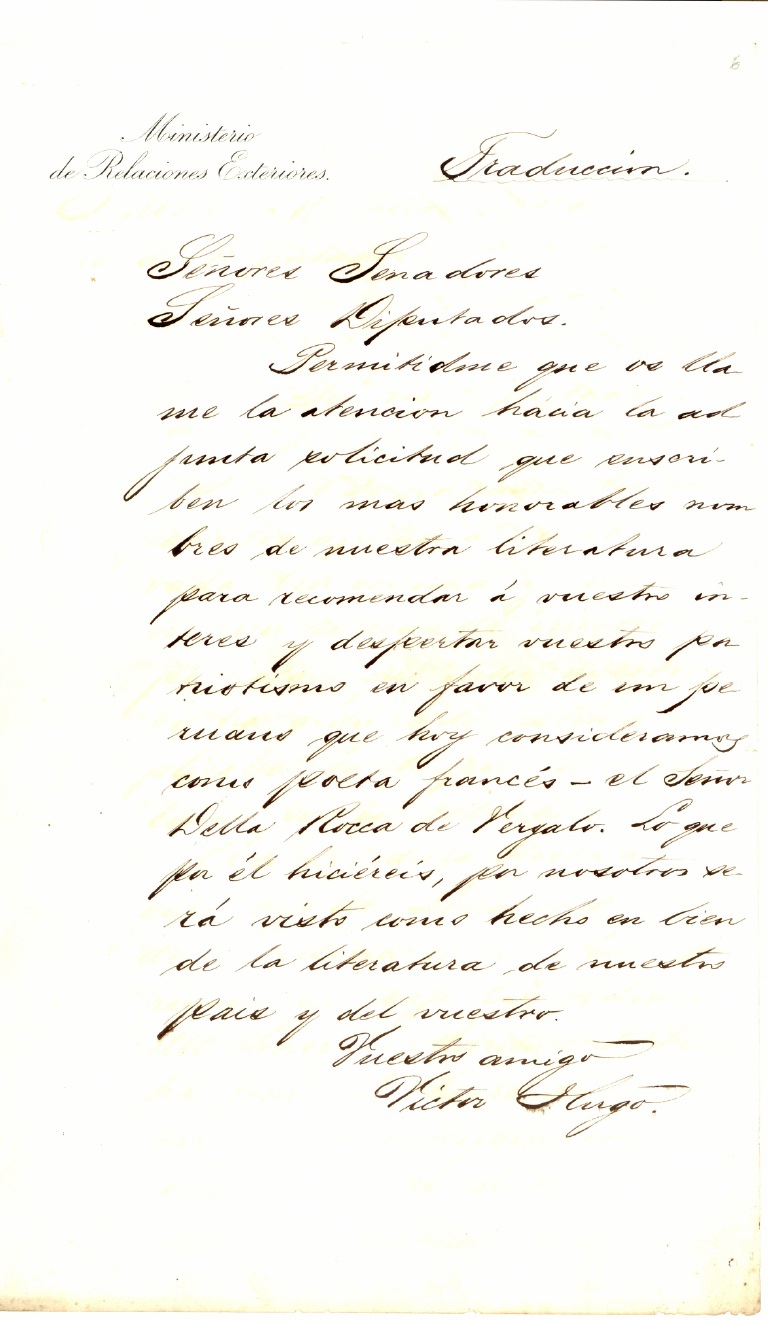 6
Ministerio
de Relaciones Exteriores.
Traduccion.
Señores Senadores
Señores Diputados.
Permitidme que os lla
me la atencion hácia la ad
junta solicitud que suscri-
ben los mas honorables nom
bres de nuestra literatura
para recomendar á vuestro in-
teres y despertar vuestro pa
triotismo en favor de un pe
ruano que hoy consideramos
como poeta francés – el Señor
Della Rocca de Vergalo. Lo que
por él hiciéreis, por nosotros se-
rá visto como hecho en bien
de la literatura de nuestro
pais y del vuestro.
Vuestro amigo
Victor Hugo.